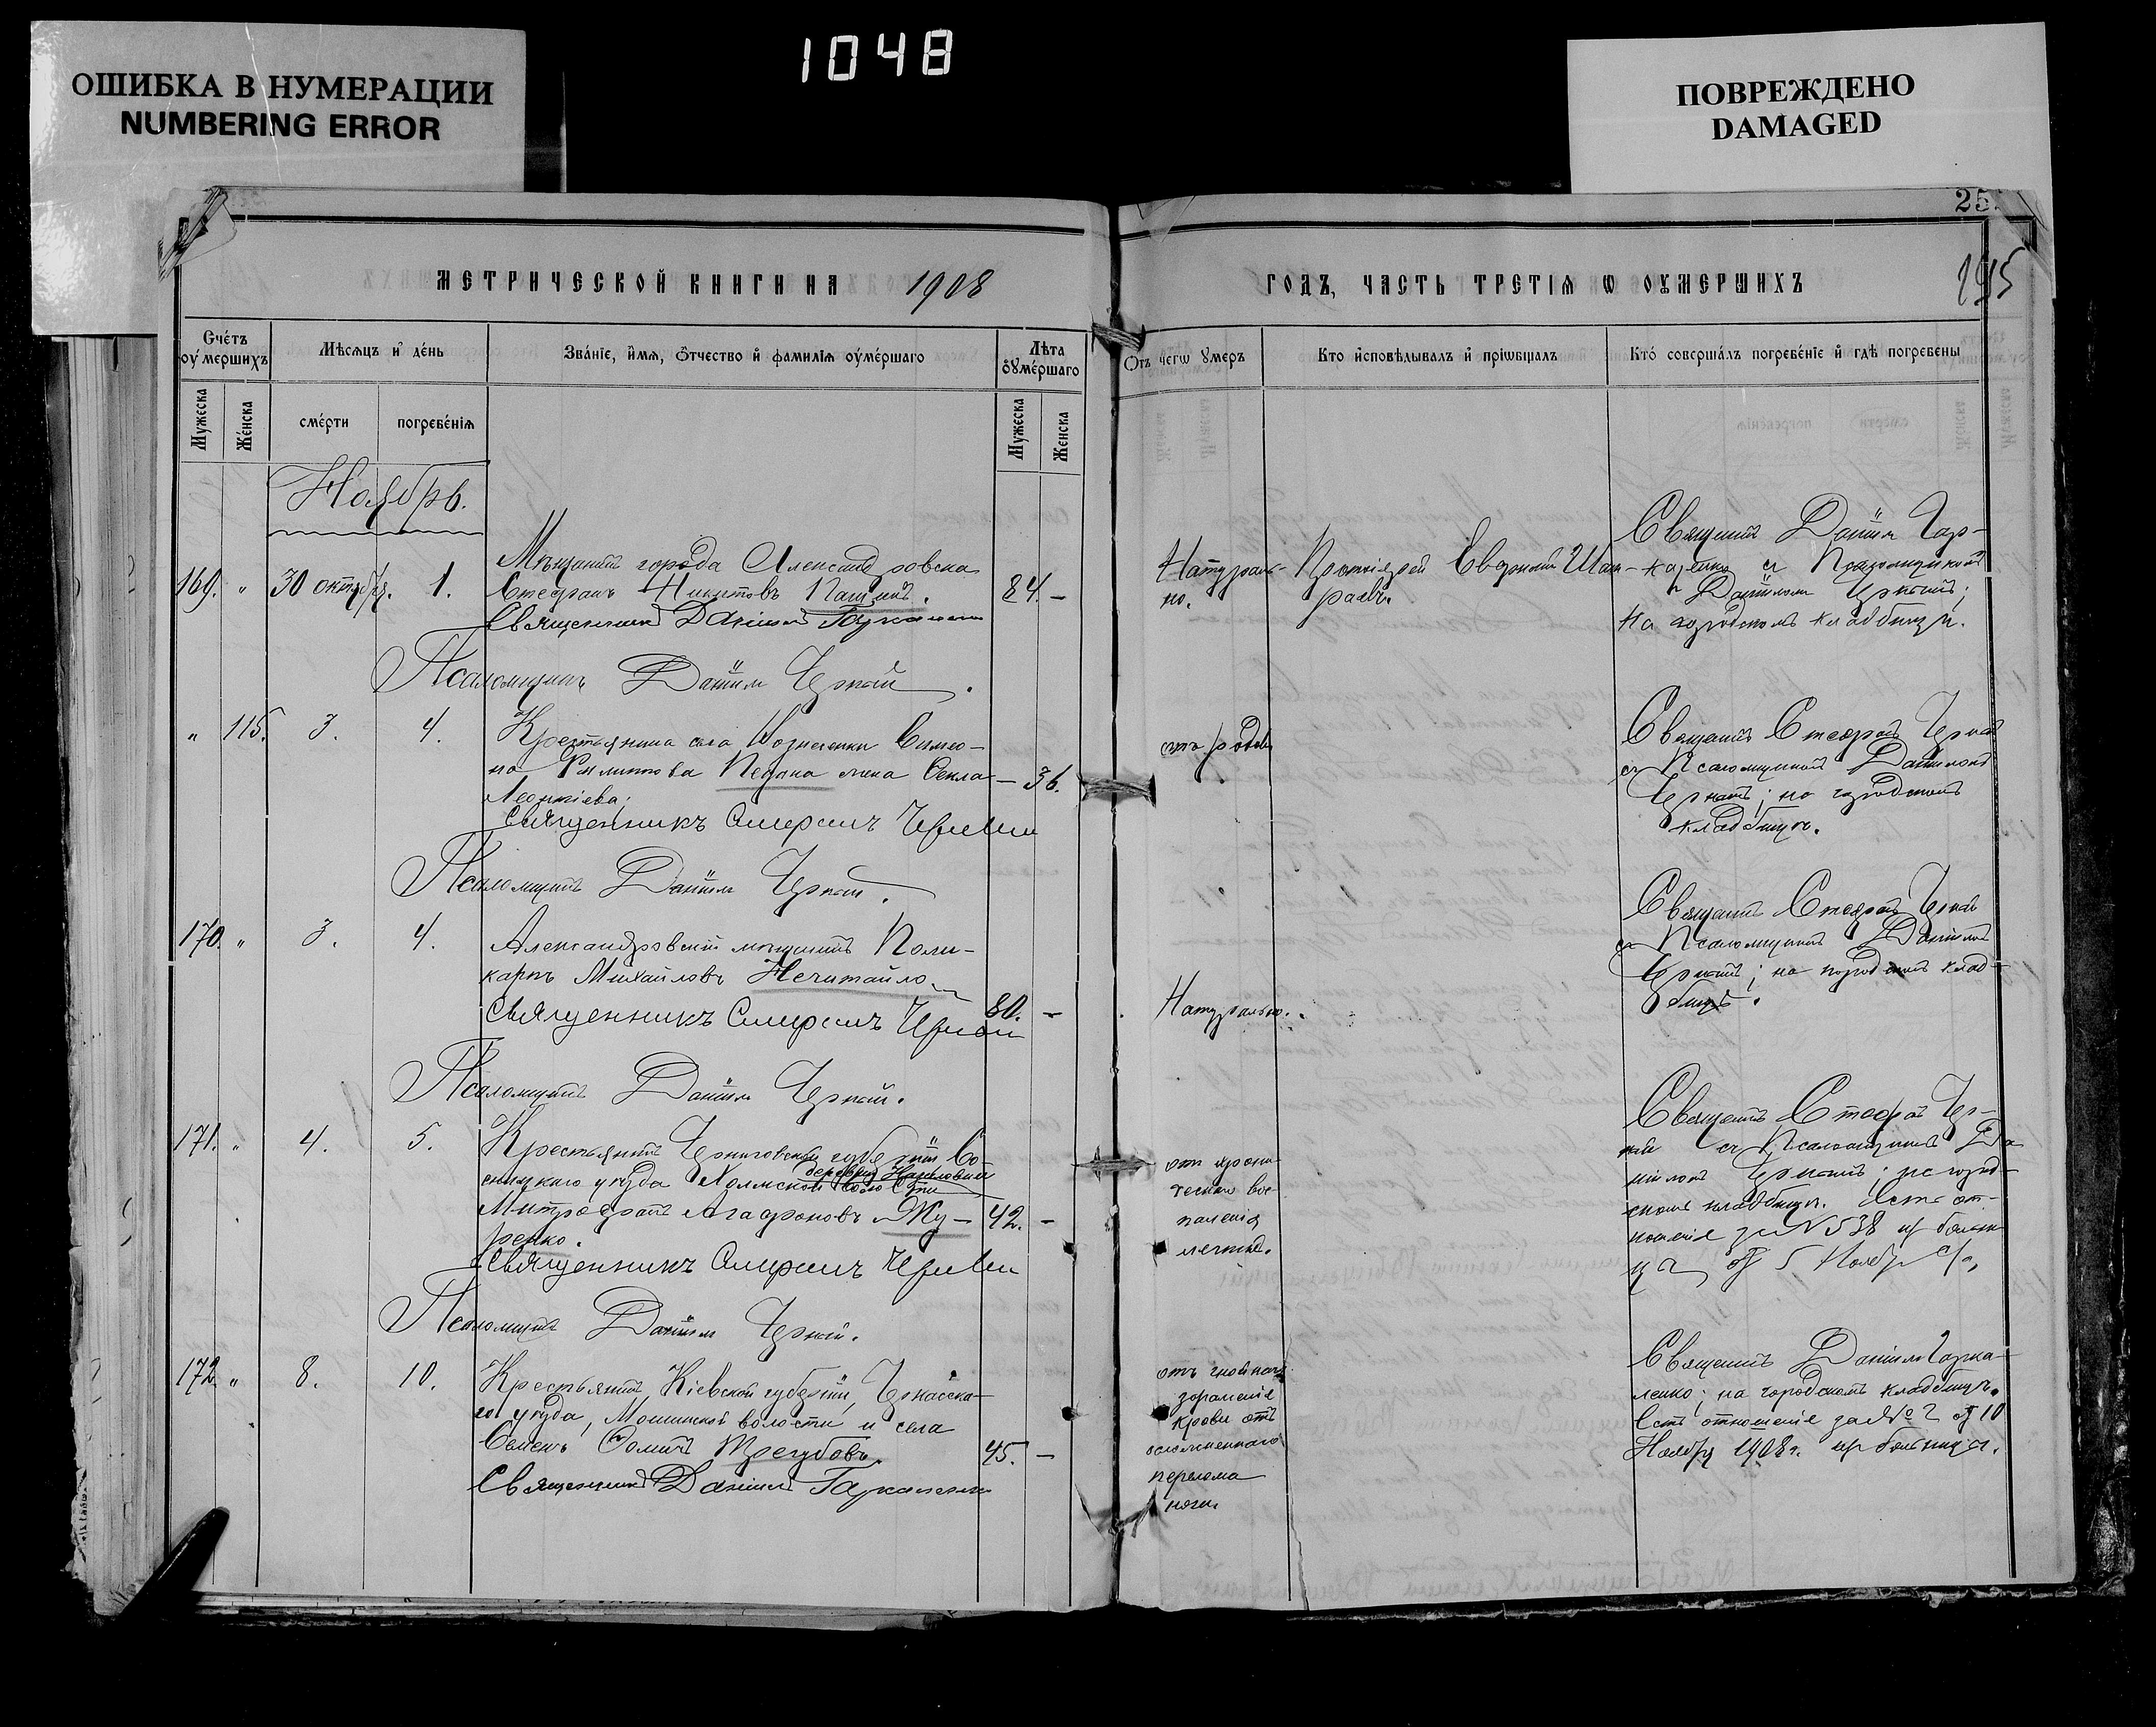 ОШИБКА В НУМЕРАЦИИ
NUMBERING ERROR
1048
ПОВРЕЖДЕНО
DAMAGED
25
МЕТРИЧЕСКОЙ КНИГИ НА 1908
ГОДЪ, ЧАСТЬ ТРЕТІѦ Ѡ ОУМЕРШИХЪ
Сче́тъ оу́мершихъ
Мѣсѧцъ и де́нь
Зва́нїе, и́мѧ, о́тчество и фами́лїѧ оуме́ршаго
Лѣта оуме́ршаго
Мужеска
Же́нска
сме́рти
погребе́нїѧ
Мужеска
Женска
Отъ чегѡ умеръ
Кто исповѣдывалъ и прїѡбщалъ
Кто́ соверша́лъ погребе́нїе и гдѣ погребены
Ноябрь.
169. " 30 октября. 1.
Мѣщанинъ города Александровска
Стефанъ Никитовъ
84. –
Священникъ Даніилъ Гаркаленко
Псаломщикъ Даніилъ Чернай.
Натураль-
но.
Протоіерей Евгеній
Священ. Даніилъ Гар-
каленко съ Псаломщикомъ
Даніиломъ
на городскомъ кладбищѣ.
" 115. 3. 4.
Крестьянина села Вознесенки Симео-
на Филиппова жена Fекла
Леонтіева;
– 36.
Священникъ Стефанъ
Псаломщикъ Даніилъ
отъ родовъ
Священ. Стефанъ
съ Псаломщикомъ Даніиломъ
на городскомъ
кладбищѣ.
170. " 3. 4.
Александровскій мѣщанинъ Поли-
карпъ Михайловъ Нечитайло
80. –
Священникъ Стефанъ
Псаломщикъ Даніилъ
Натурально.
Священ. Стефанъ
съ Псаломщикомъ Даніиломъ
на городскомъ клад-
бищѣ.
171. " 4. 5.
Крестьянинъ Черниговской губерніи Со-
сницкаго уѣзда Холмской волости
деревни
Митрофанъ Агафоновъ Жу-
ренко.
42. –
Священникъ Стефанъ
Псаломщикъ Даніилъ
отъ хрони-
ческаго вос-
паленія
легкихъ.
Священ. Стефанъ
съ Псаломщикомъ Да-
ніиломъ на город-
скомъ кладбищѣ. Есть от-
ношеніе за № 538 изъ больни-
цы отъ 5 Ноября
172. " 8. 10.
Крестьянинъ Кіевской губерніи, Черкасска-
го уѣзда, Мошинской волости и села
Семенъ Трегубовъ.
45. –
Священникъ Даніилъ Гаркаленко
отъ гнойнаго
зараженія
крови отъ
осложненнаго
перелома
ноги
Священ. Даніилъ Гарка-
ленко; на городскомъ кладбищѣ.
Есть отношеніе за № 2 отъ 10
Ноября 1908 г. изъ больницы.